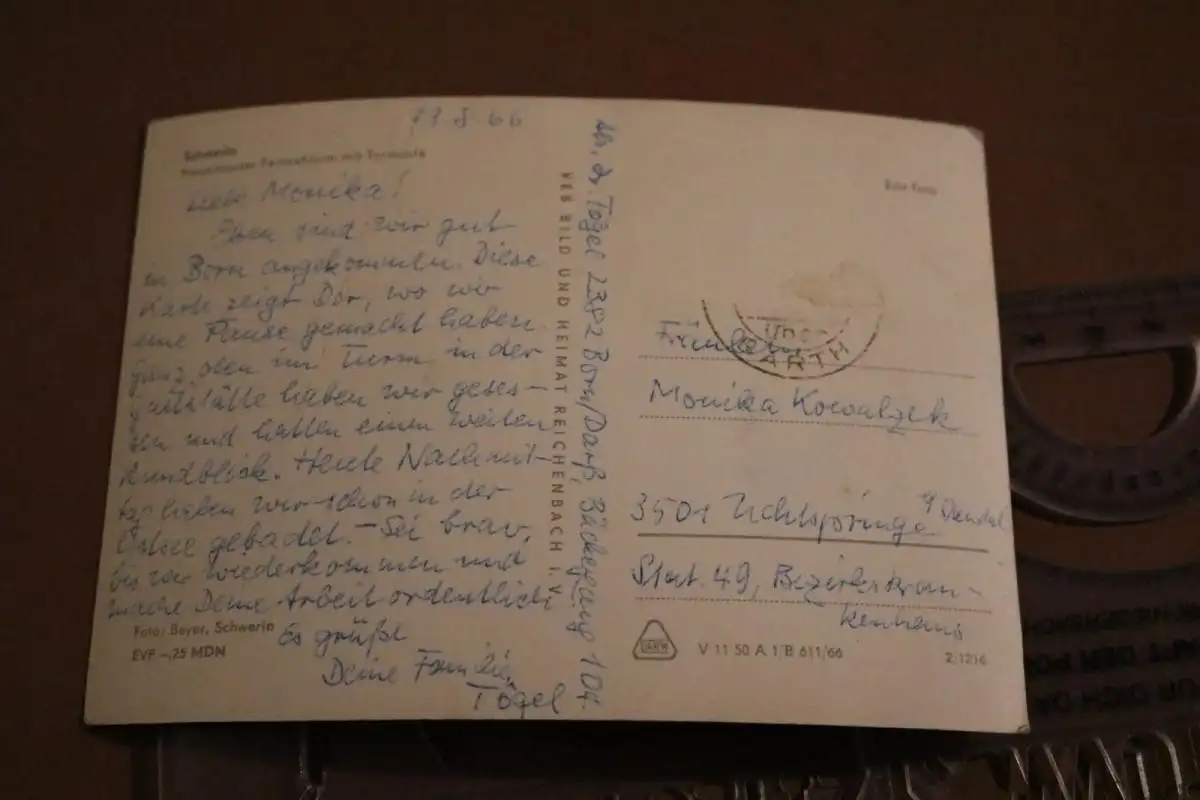 Schwerin
Fernsehturm mit
Echt Foto
Liebe Monika!
Eben sind wir gut
in Born angekommen. Diese
Karte zeigt Dir, wo wir
eine Pause gemacht haben.
Ganz oben im Turm in der
Gaststätte haben wir geses-
sen und hatten einen weiten
Rundblick. Heute Nachmit-
tag haben wir schon in der
Ostsee gebadet. – Sei brav,
bis wir wiederkommen und
mache Deine Arbeit ordentlich
Es grüßt
Deine Familie
Tögel
Foto: Beyer, Schwerin
EVF –,25 MDN
VEB BILD UND HEIMAT REICHENBACH I. V.
Tögel 2382 Born/Darß, Bäckergang 104
BARTH
Fräulein
Monika Kowalzek
3501 Uchtspringe
Stat. 49, Bezirkskran-
kenhaus
V 11 50 A 1/B 611/66
2/1216